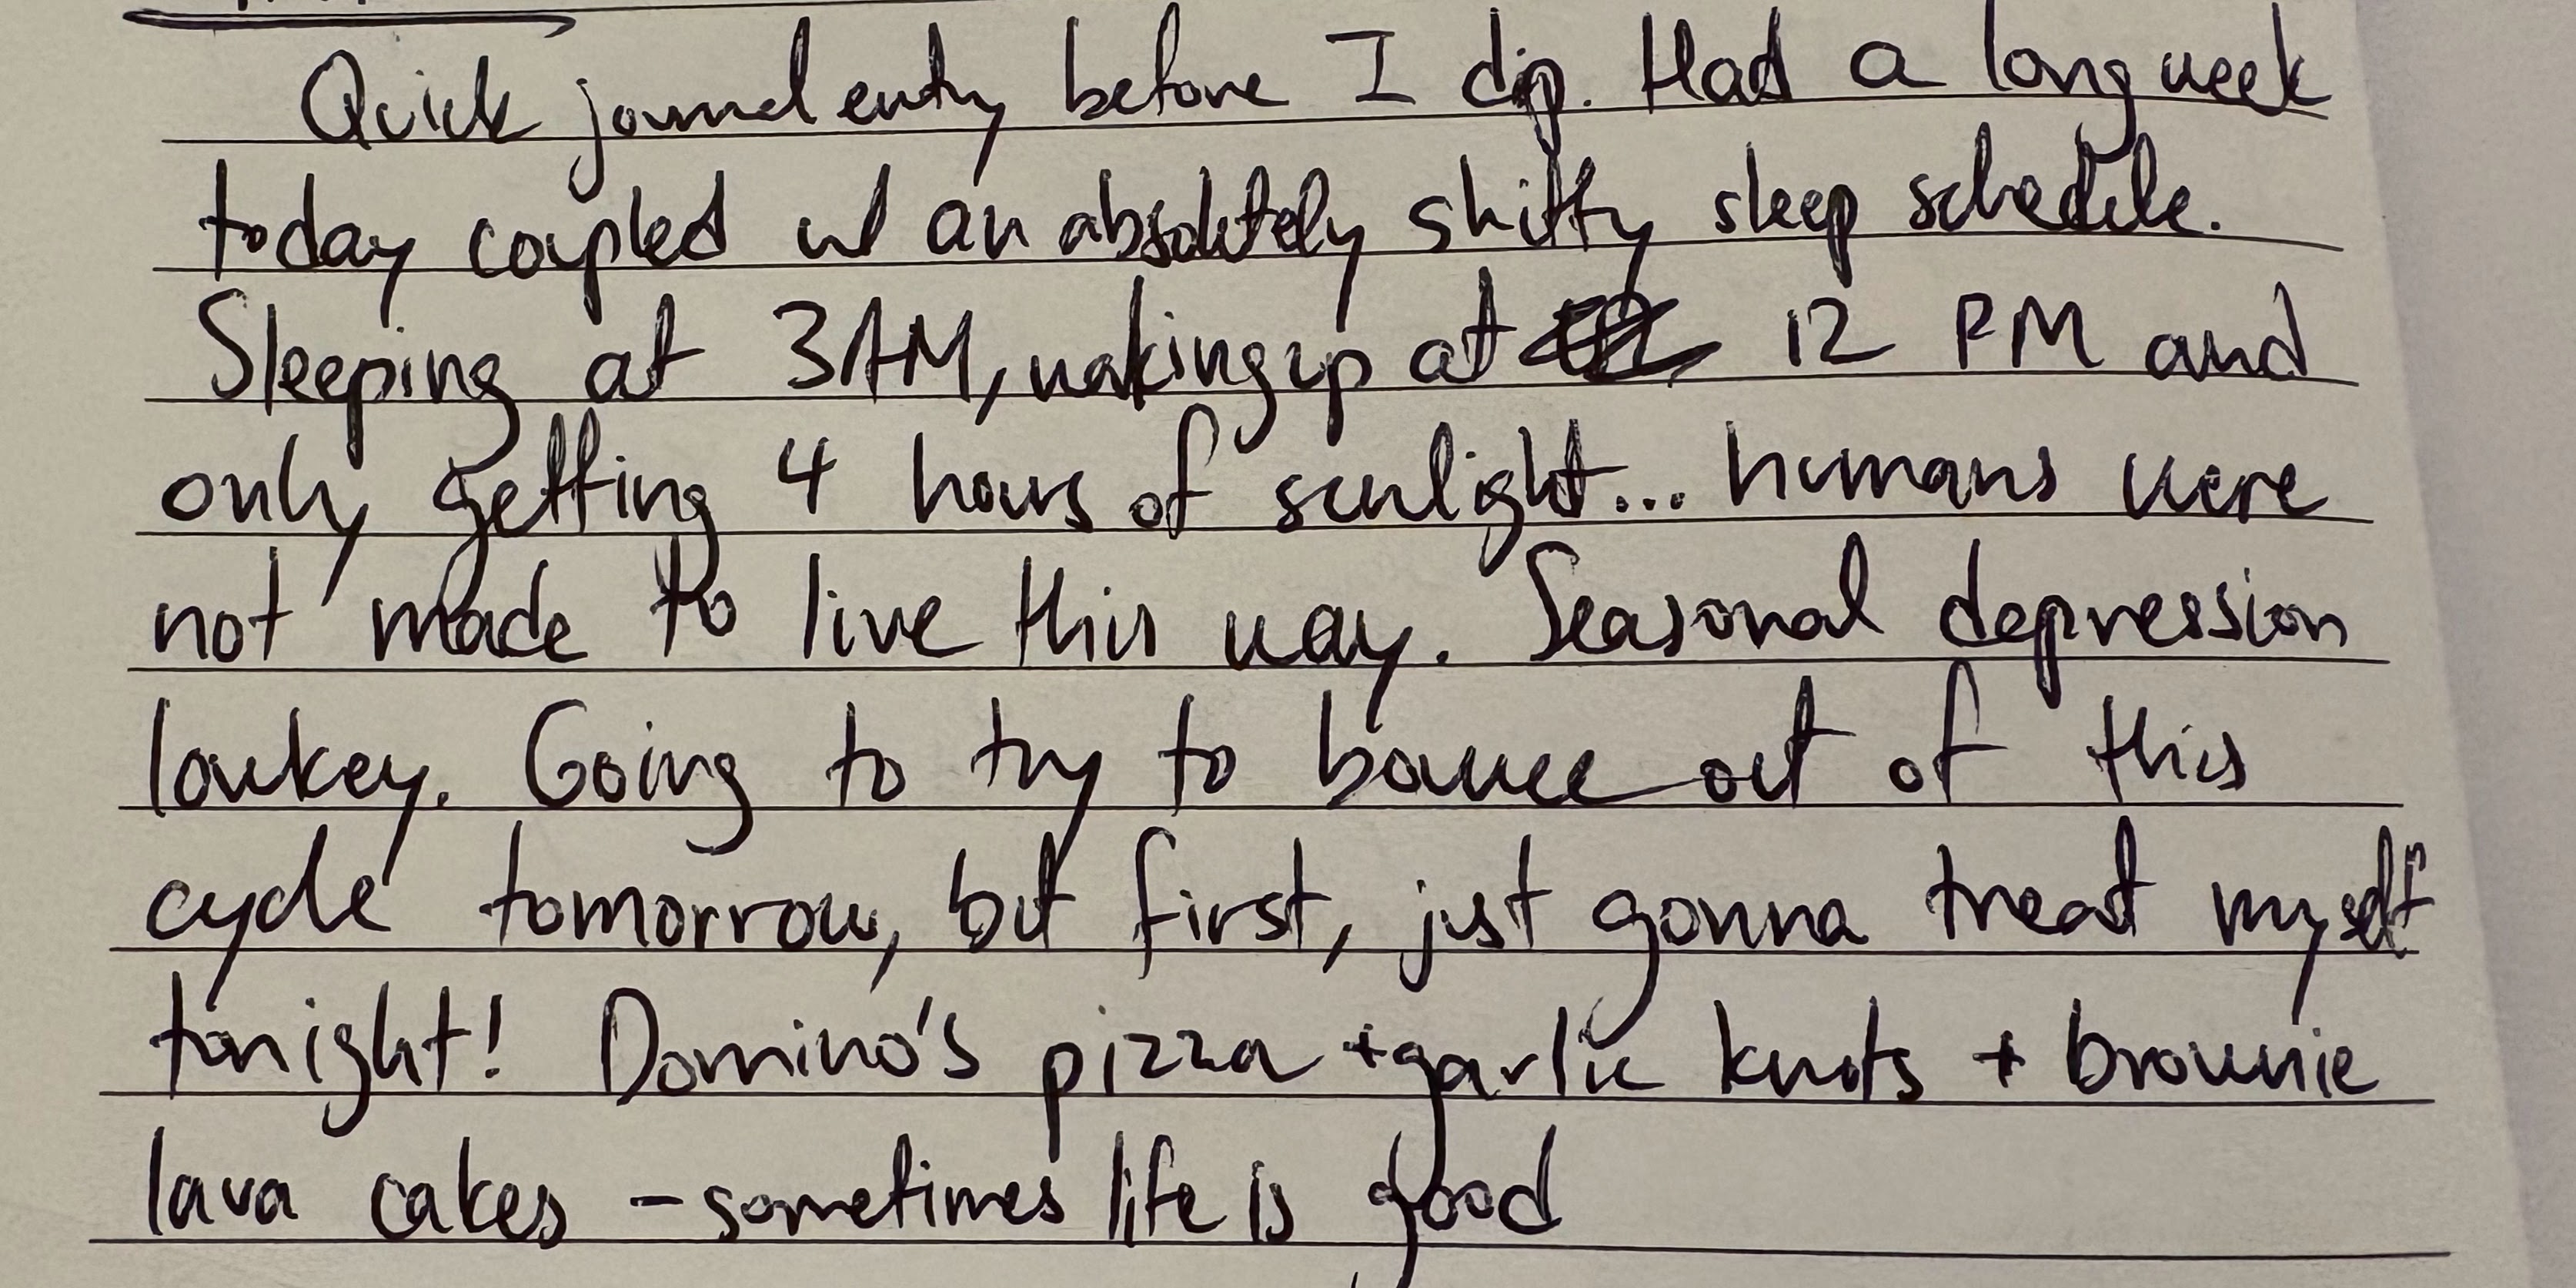 Quick journal entry before I dip. Had a long week
today coupled w/ an absolutely shitty sleep schedule.
Sleeping at 3AM, waking up at 12 PM and
only getting 4 hours of sunlight... humans were
not made to live this way. Seasonal depression
lowkey. Going to try to bounce out of this
cycle tomorrow, but first, just gonna treat myself
tonight! Domino's pizza + garlic knots + brownie
lava cakes - sometimes life is good